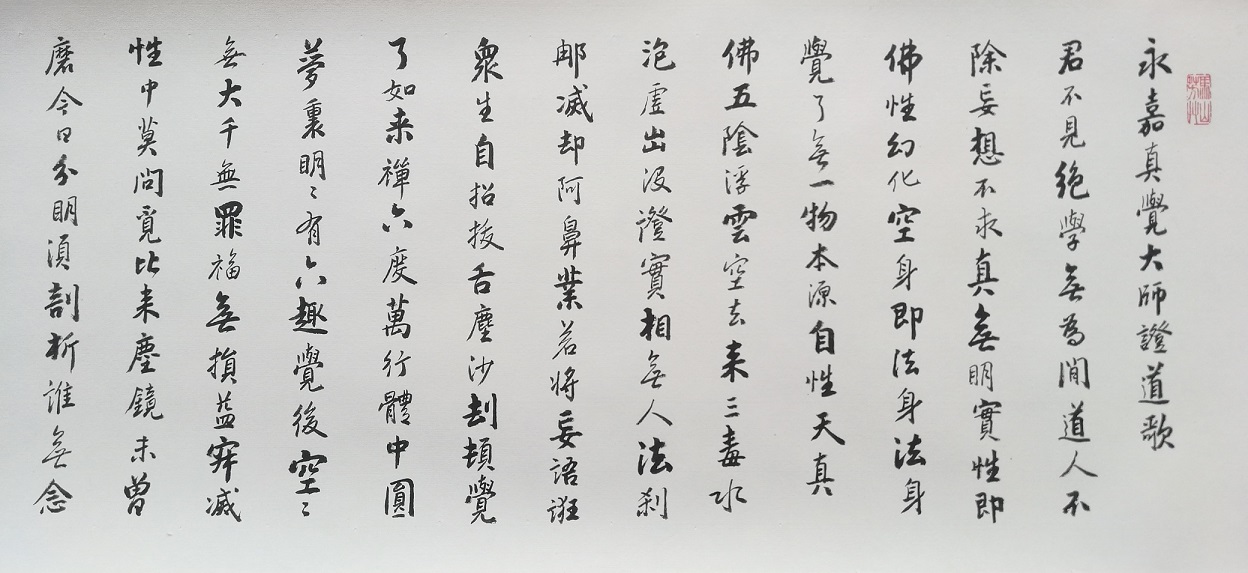 永嘉真覺大師證道歌
君不見絕學無為閒道人不
除妄想不求真無明實性即
佛性幻化空身即法身法身
覺了無一物本源自性天真
佛五陰浮雲空去来三毒水
泡虛出沒證實相無人法剎
那滅却阿鼻業若將妄語誑
衆生自招拔舌塵沙劫頓覺
了如来禪六度萬行體中圓
夢裏明〻有六趣覺後空〻
無大千無罪福無損益寂滅
性中莫問覓比来塵鏡未曾
磨今日分明須剖析誰無念